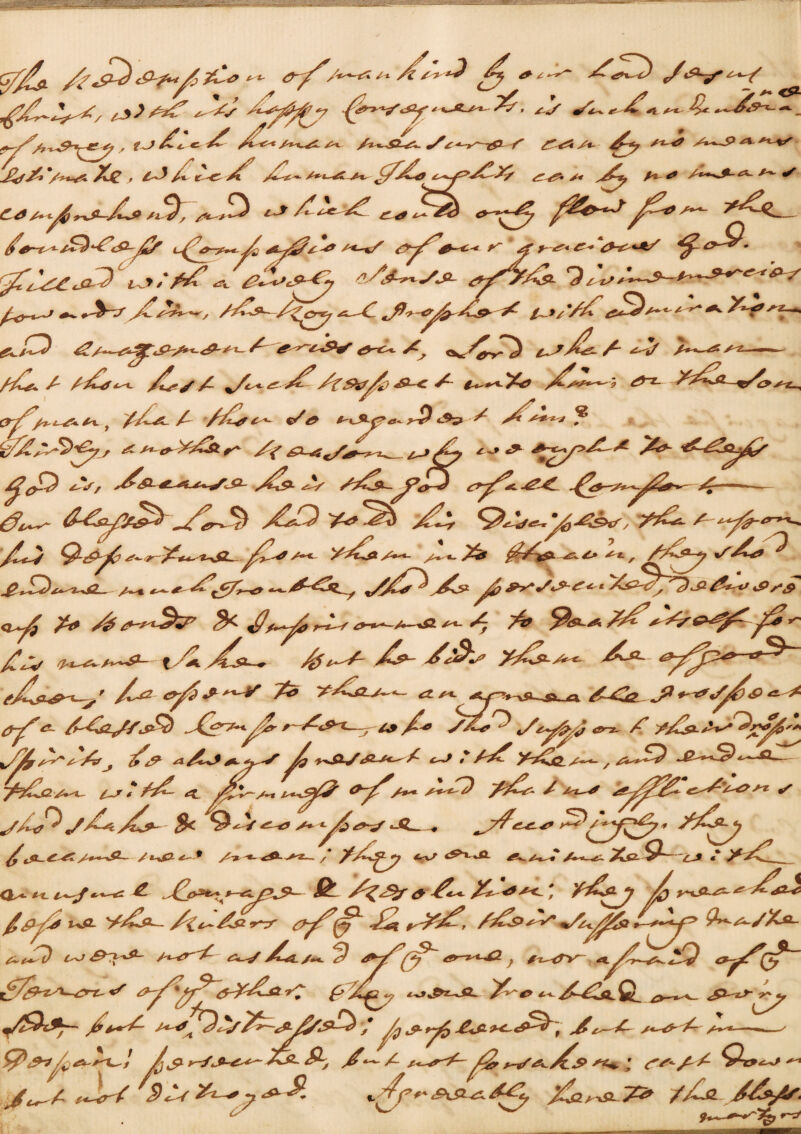 The Redemption of mankind by our Lord Jesus
Christ, with it's happy Consequents, is such an Exuberance
of mercy, which human measures can by no means
Estimate, which human Thoughts can by no means
comprehend, and which could only flow from the
boundless Compassions of our gracious God.
Filled with a lively Sense of the divine mercies
towards him, the Royal Prophet with admiration
and amazement cries out, Lord what is man
that thou hast such Respect unto him; or the Son
of man, that thou so regardest him?
Thirdly, another Reason why we ought to bless
God is, because he is the God of all Comfort.
Our blessed Lord had told his Disciples, that upon
his Departure from them into Heav'n, they sho'd
endure much Trouble, sho'd be persecuted, delivere'd
up to Bonds & Imprisonment, to Death itself for
his name Sake. But he bids them be of good
cheer; he opens to them an agreeable Prospect
of a blessed Comforter, who sho'd support their droping
Spirits, be always present with them, and endue
them with a firmness of mind that no afflictions
sho'd shake & discompose. Accordingly, they
became new men; they were animated with
unusual Courage & Resolution; they preached
before the Rulers of ye Earth, their suffering Maste
and were not asham'd of ye one, nor afraid of ye
Terrors of ye other. They were troubled on ev'ry
side, but not distressed; perplexed, but not in
Despair; persecuted, but not forsaken; cast down
but not distroyed. Agreeably hereto the bless.
martyrs